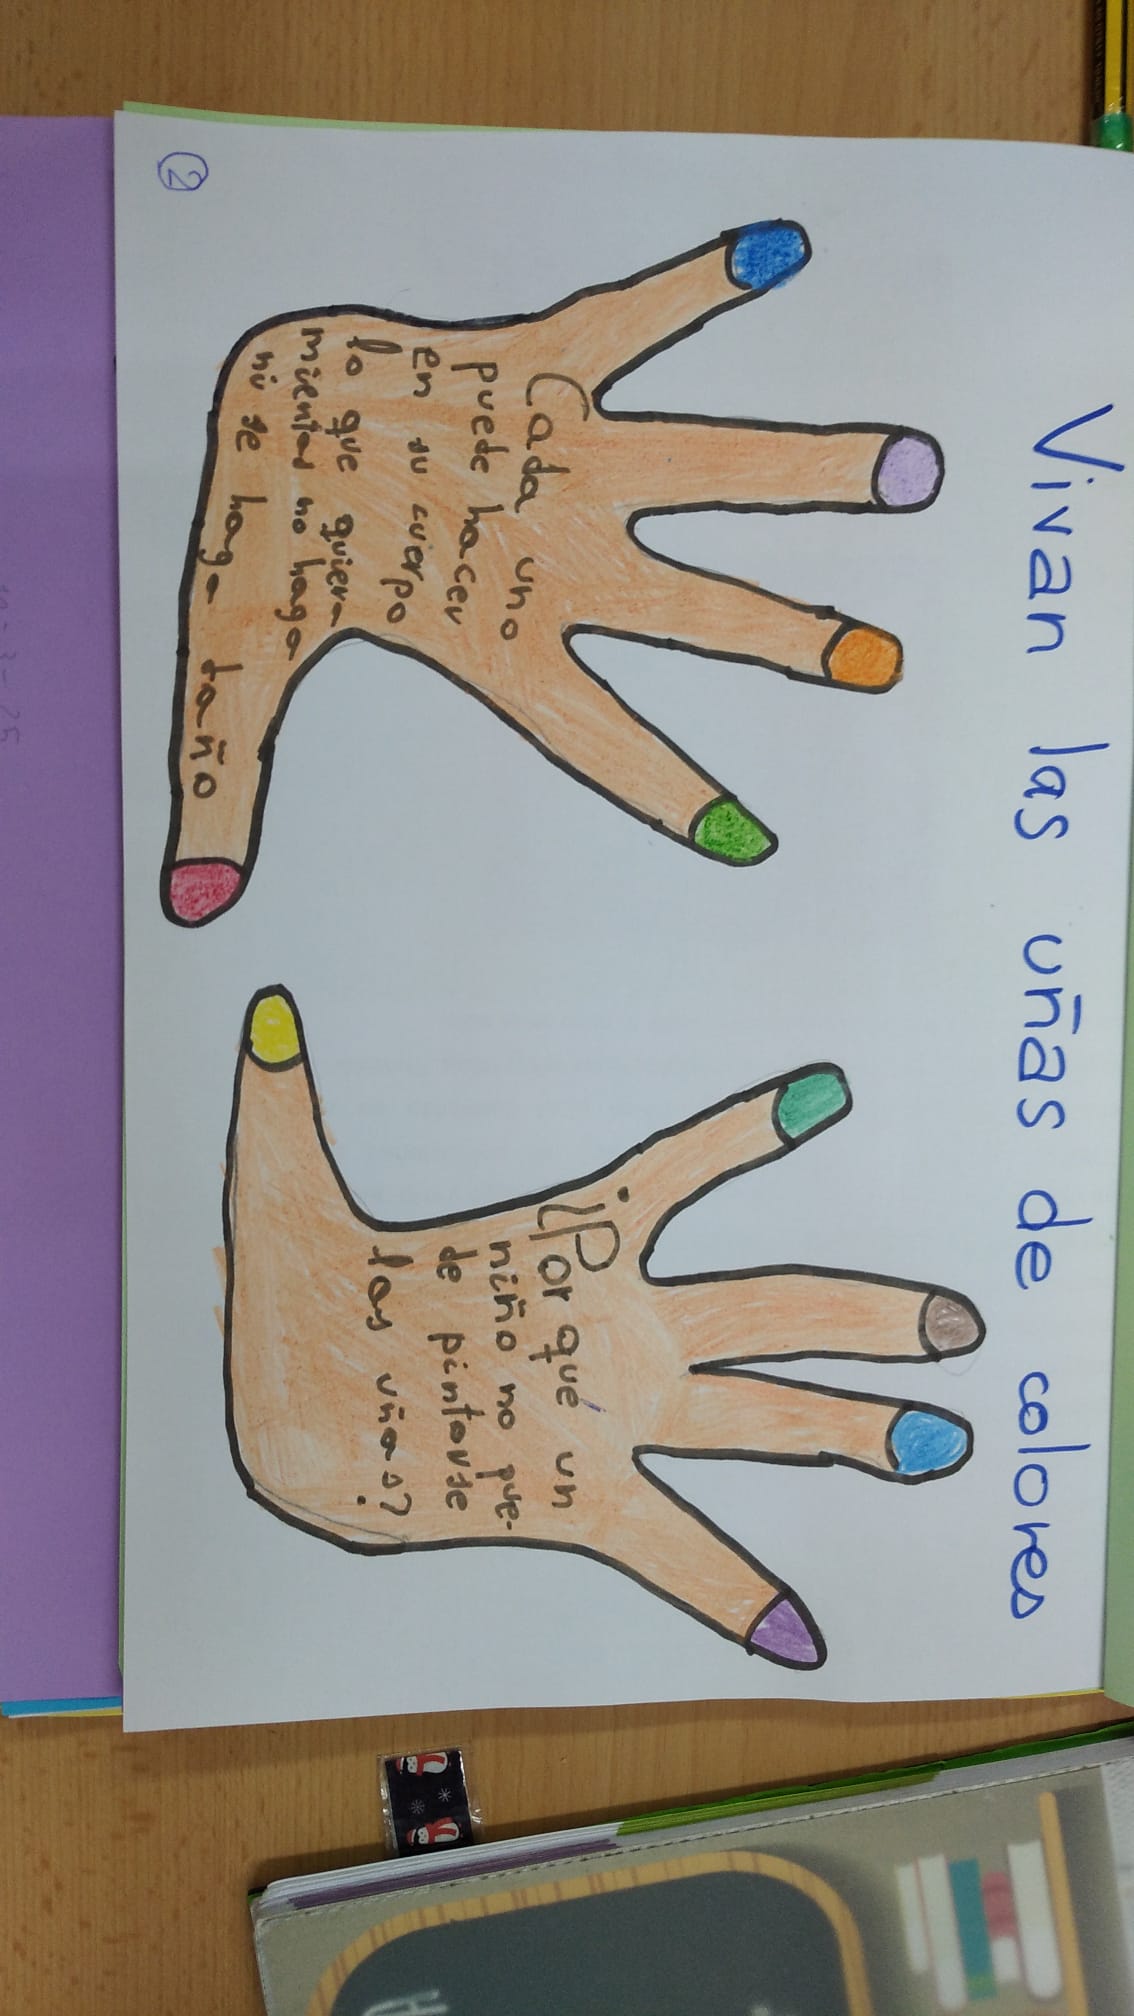 Vivan las uñas de colores
Cada uno
puede hacer
en su cuerpo
lo que quiera
mientas no haga
ni se haga daño
¿Por qué un
niño no pue-
de pintarse
las uñas?
2